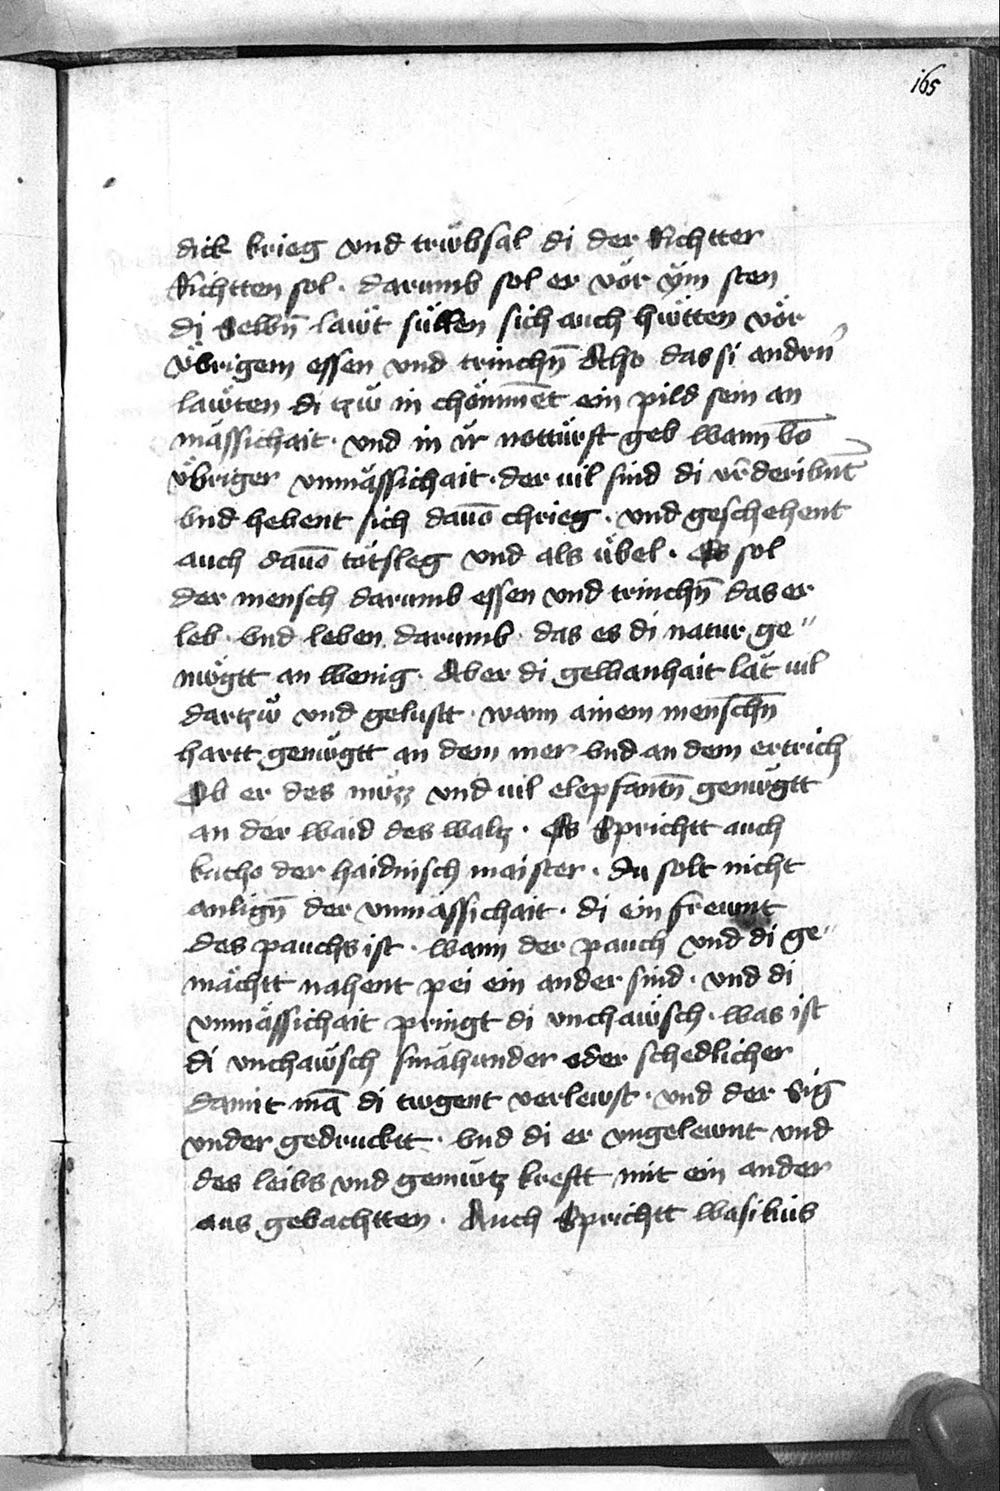 165
dick krieg vnd trwbsal di der Richtter
Richtten sol · darumb sol er vor ym sten
di Selbn̄ lawt sullen sich auch hwtten vor
vbrigem essen vnd trinchn̄ Also das si andrn
lawten di tzw in chomm̄et ein pild sein an
massichait · vnd in ir notturft geb wann vō
vbriger vnmassichait · der uil sind di
vnd hebent sich dauō chrieg · vnd geschehent
auch dauō totsleg vnd als ubel · Es sol
der mensch darumb essen vnd trinchn̄ das er
leb · vnd leben darumb · das es di natur ge〃
nwgtt an wenig · Aber di gewanhait lat uil
dartzw vnd gelustt · wann ainem menschn̄
hartt genwgtt an dem mer vnd an dem ertrich
Ob er des nwzz vnd uil elepfantn̄ genwgtt
an der waid des waltz · Es Sprichtt auch
katho der haidnisch maister · du solt nicht
anlign̄ der vnmassichait · di ein frewnt
des pauchs ist · wann der pauch vnd di ge〃
mächtt nahent pei ein ander sind · vnd di
vnmässichait pringt di vnchawsch · was ist
di vnchawsch smahunder oder schedlicher
damit mā di twgent verlewst · vnd der Sig
vnder gedrucktt · vnd di er vngelewnt vnd
des leibs vnd gemwtz krefft mit ein ander
aus gebachtten · Auch Sprichtt wasilius